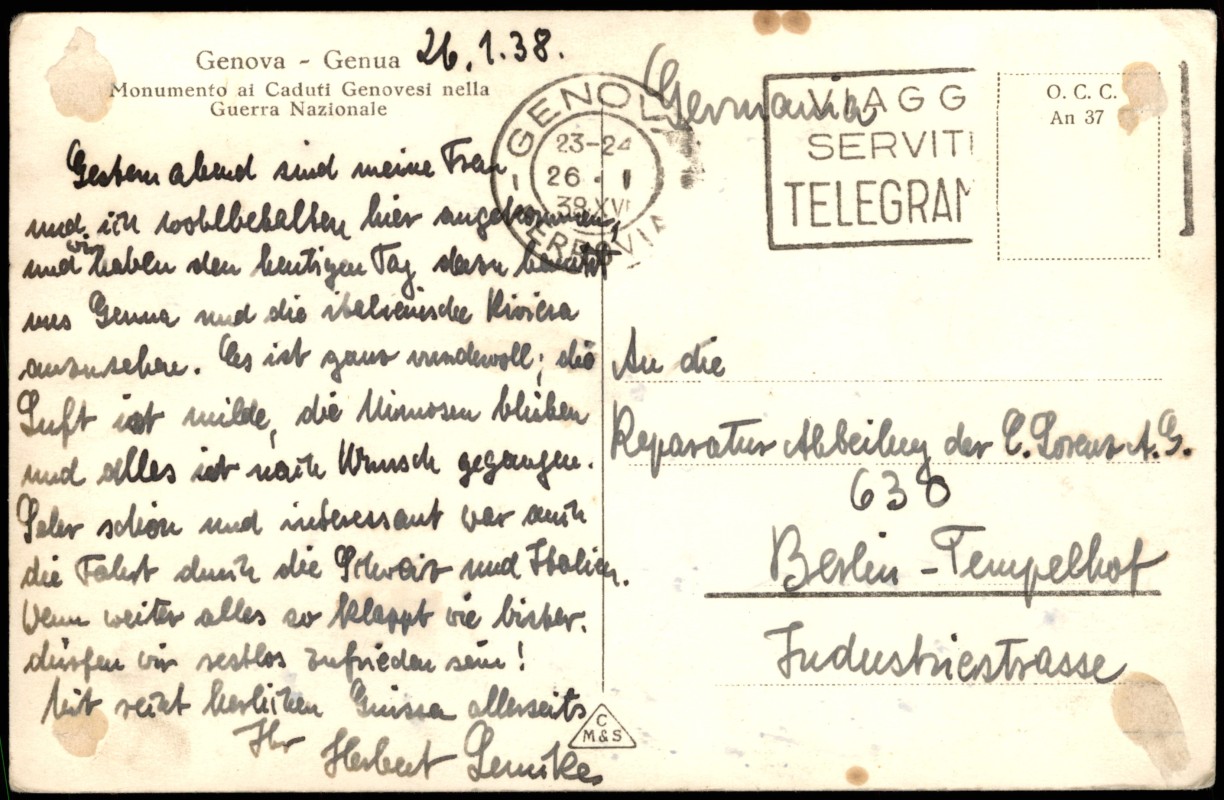 Genova - Genua 26.1.38.
Monumento ai Caduti Genovesi nella
Guerra Nazionale
Gestern abend sind meine Frau
und ich wohlbehalten hier angekommen,
und wir haben den heutigen Tag dazu benützt
uns Genua und die italienische Riviera
anzusehen. Es ist ganz wundervoll; die
Luft ist milde, die Mimosen blühen
und alles ist nach Wunsch gegangen.
Sehr schön und interessant war auch
die Fahrt durch die Schweiz und Italien.
Wenn weiter alles so klappt wie bisher.
dürfen wir restlos zufrieden sein!
Mit recht herzlichen Grüssen allerseits
Ihr Herbert
C
M&S
GENOVA
23-24
26 · 1
38 XVI
FERROVIA
(Germania
VIAGG
SERVITI
TELEGRAM
O. C. C.
An 37
An die
Reparatur Abteilung der C. Lorenz A.G.
638
Berlin - Tempelhof
Industriestrasse